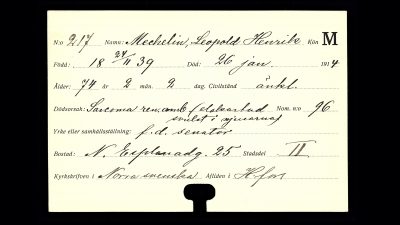 N:o 217 Namn: Mechelin, Leopold Henrik Kön M
Född: 18 24/11 39 Död: 26 jan. 1914
Ålder: 74 år 2 mån. 2 dag. Civilstånd änkl.
Dödsorsak: Sarcoma ren. Nom. n:o 96
Yrke eller samhällsställning: f.d. senator
Bostad: N. Esplanadg. 25 Stadsdel II
Kyrkskrifven i Norra svenska Afliden i H:fors